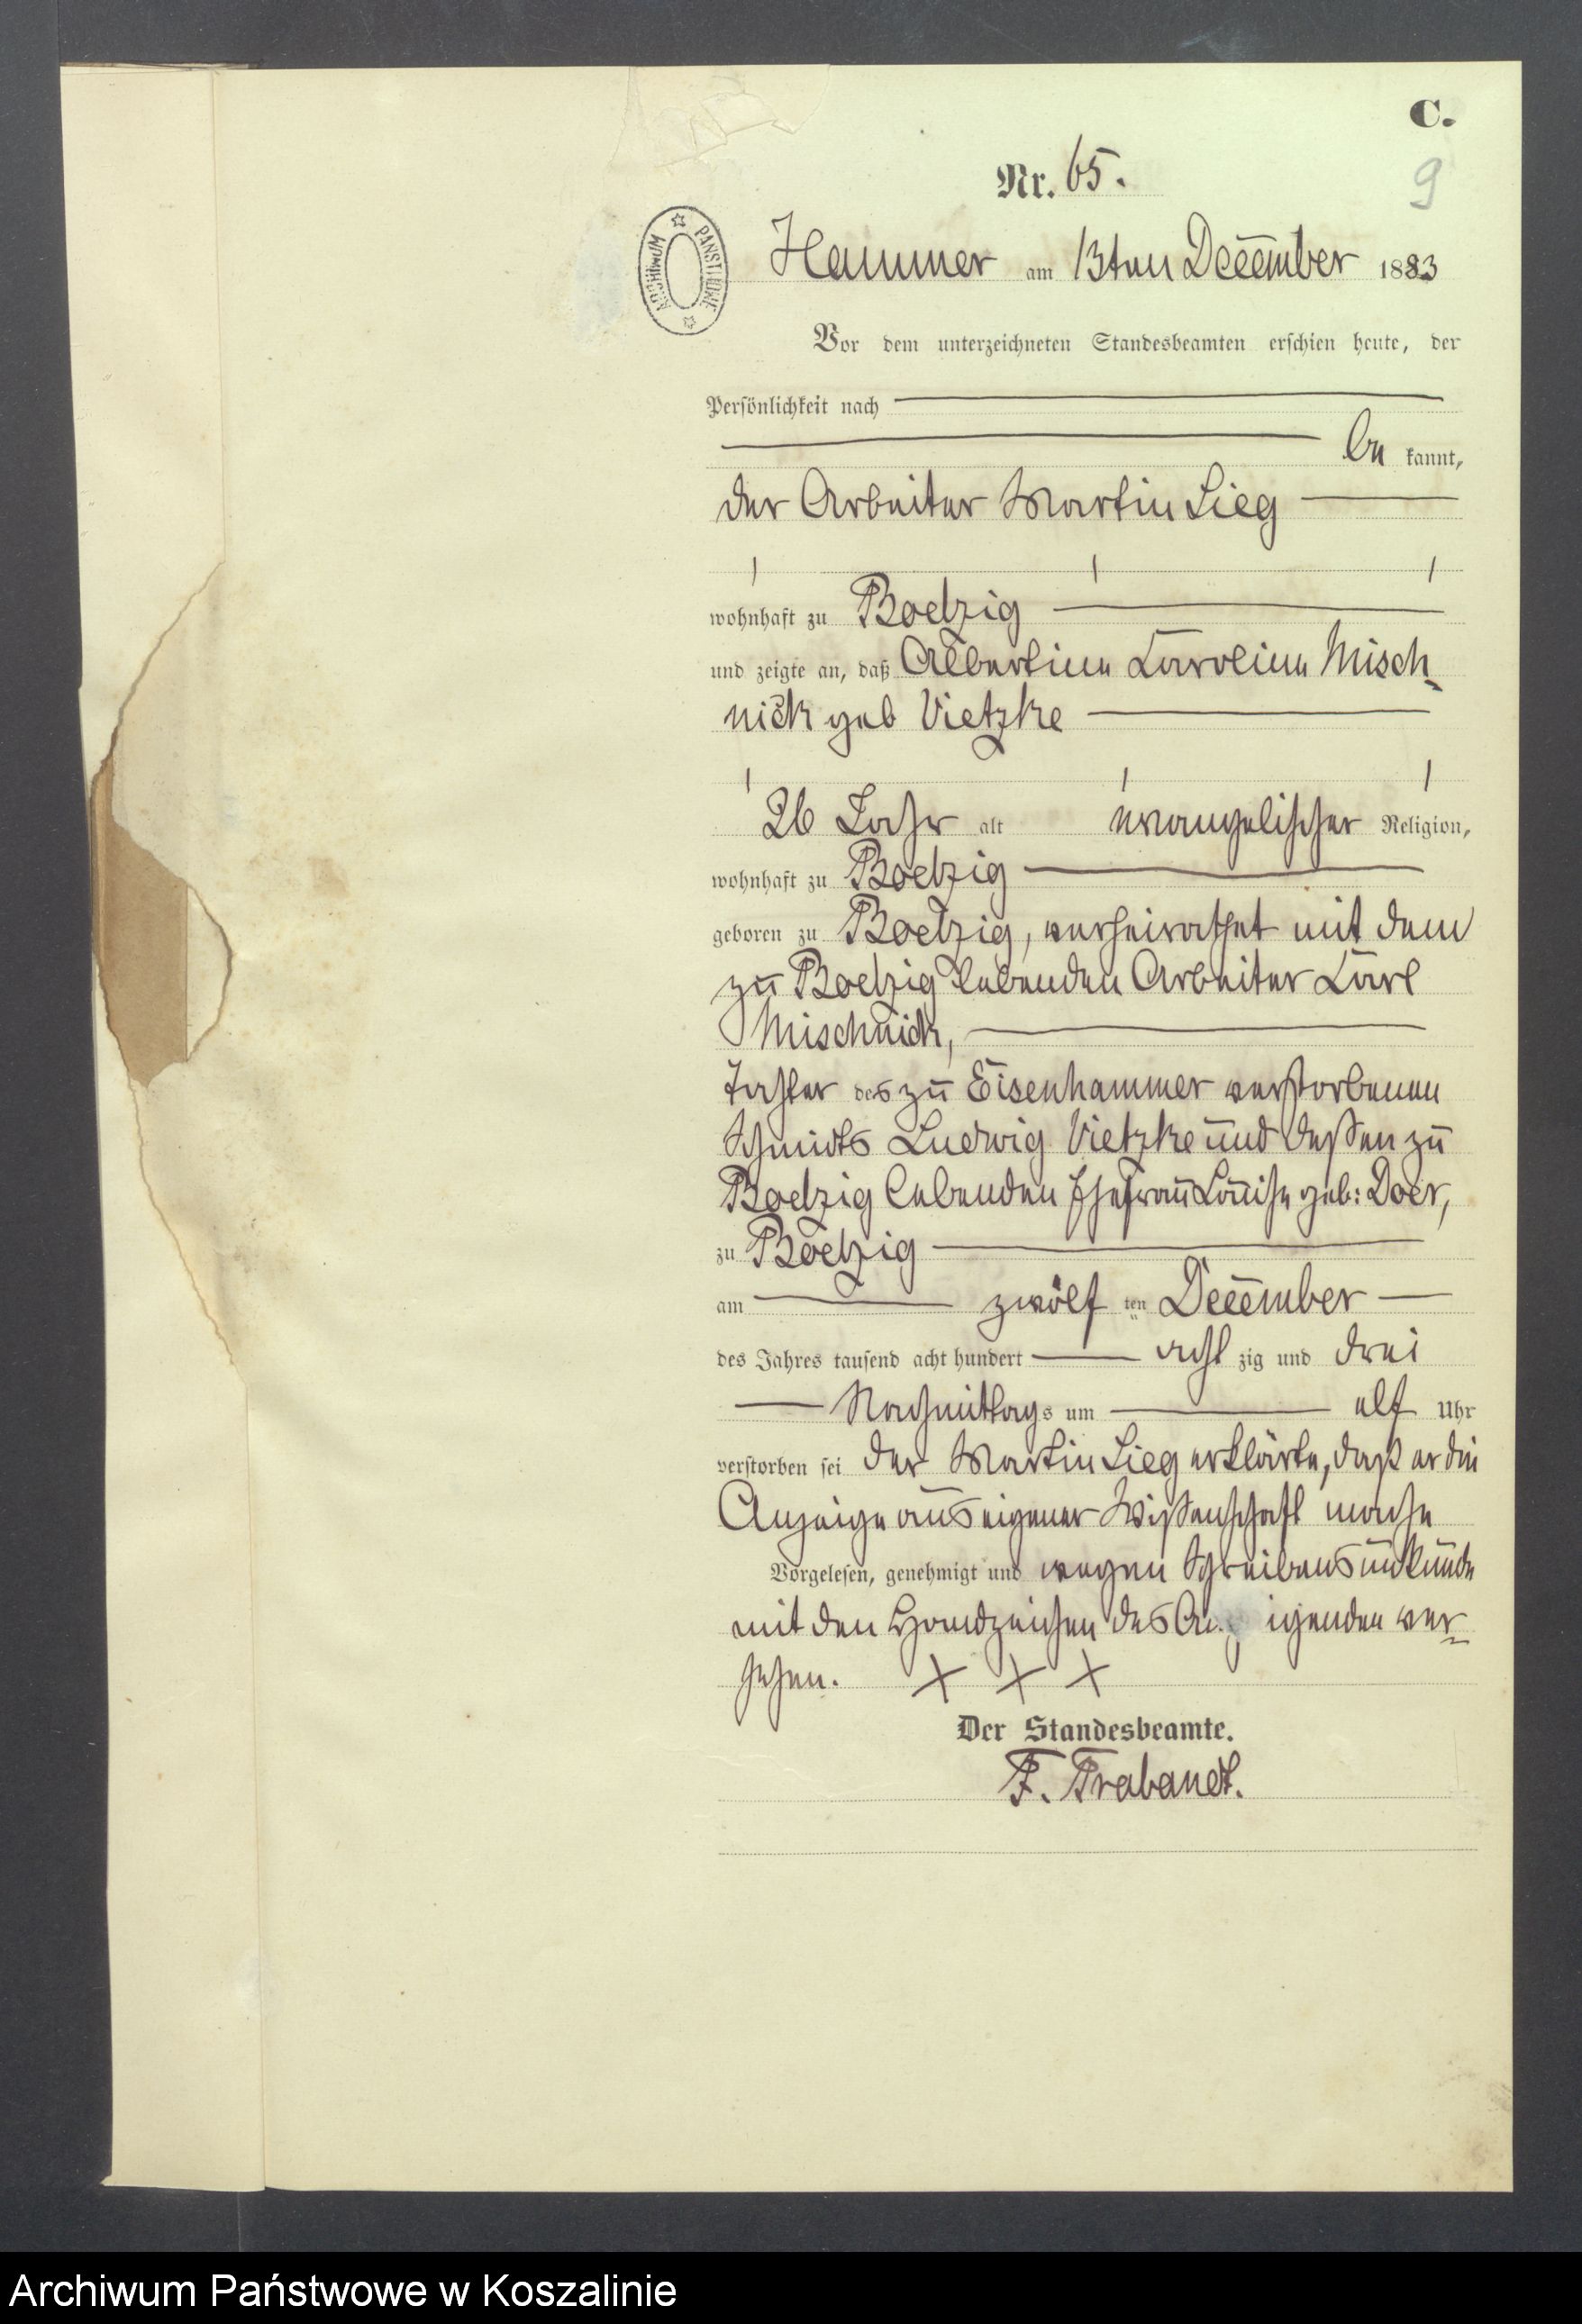 C.
Nr. 65.
9
ARCHIWUM PAŃSTWOWE
Hammer am 13ten December 1883
Vor dem unterzeichneten Standesbeamten erschien heute, der
Persönlichkeit nach
be kannt,
der Arbeiter Martin Lieg
wohnhaft zu Boetzig
und zeigte an, daß Albertine Caroline Misch-
nick geb Vietzke
26 Jahr alt evangelischer Religion,
wohnhaft zu Boetzig
geboren zu Boetzig, verheirathet mit dem
zu Boetzig lebenden Arbeiter Carl
Mischnick,
Tochter des zu Eisenhammer verstorbenen
Schmidts Ludwig Vietzke und dessen zu
Boetzig lebenden Ehefrau Louise geb: Doer,
zu Boetzig
am zwölf ten December
des Jahres tausend acht hundert acht zig und drei
Nachmittags um elf Uhr
verstorben sei der Martin Lieg erklärte, daß er die
Anzeige aus eigener Wissenschaft mache
Vorgelesen, genehmigt und wegen Schreibensunkunde
mit den Handzeichen des Anzeigenden ver-
sehen. X X X
Der Standesbeamte.
F. Trabandt.
Archiwum Państwowe w Koszalinie